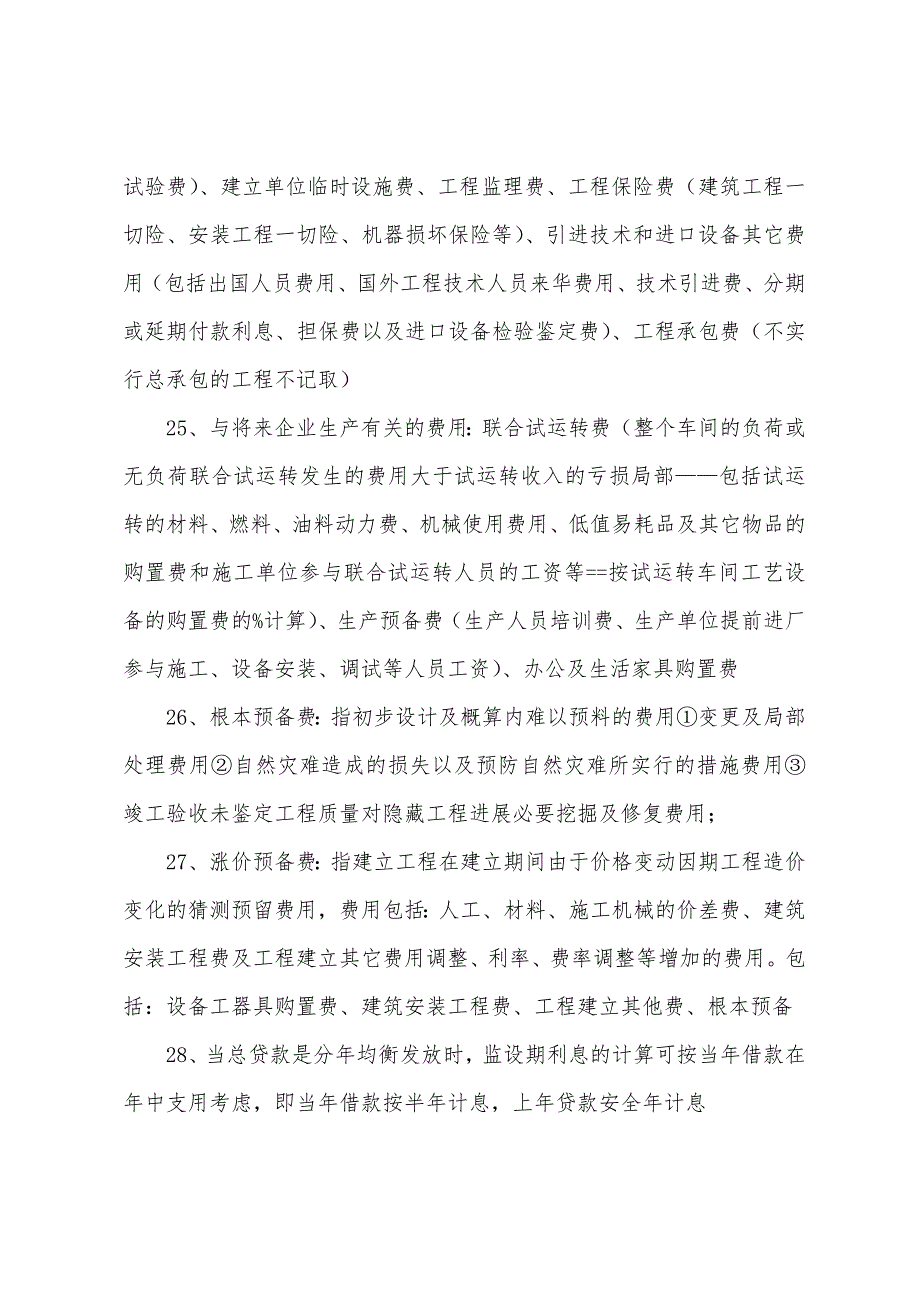 试验费）、建立单位临时设施费、工程监理费、工程保险费（建筑工程一
切险、安装工程一切险、机器损坏保险等）、引进技术和进口设备其它费
用（包括出国人员费用、国外工程技术人员来华费用、技术引进费、分期
或延期付款利息、担保费以及进口设备检验鉴定费）、工程承包费（不实
行总承包的工程不记取）
25、与将来企业生产有关的费用：联合试运转费（整个车间的负荷或
无负荷联合试运转发生的费用大于试运转收入的亏损局部——包括试运
转的材料、燃料、油料动力费、机械使用费用、低值易耗品及其它物品的
购置费和施工单位参与联合试运转人员的工资等==按试运转车间工艺设
备的购置费的%计算）、生产预备费（生产人员培训费、生产单位提前进厂
参与施工、设备安装、调试等人员工资）、办公及生活家具购置费
26、根本预备费：指初步设计及概算内难以预料的费用①变更及局部
处理费用②自然灾难造成的损失以及预防自然灾难所实行的措施费用③
竣工验收未鉴定工程质量对隐藏工程进展必要挖掘及修复费用；
27、涨价预备费：指建立工程在建立期间由于价格变动因期工程造价
变化的猜测预留费用，费用包括：人工、材料、施工机械的价差费、建筑
安装工程费及工程建立其它费用调整、利率、费率调整等增加的费用。包
括：设备工器具购置费、建筑安装工程费、工程建立其他费、根本预备
28、当总贷款是分年均衡发放时，监设期利息的计算可按当年借款在
年中支用考虑，即当年借款按半年计息，上年贷款安全年计息